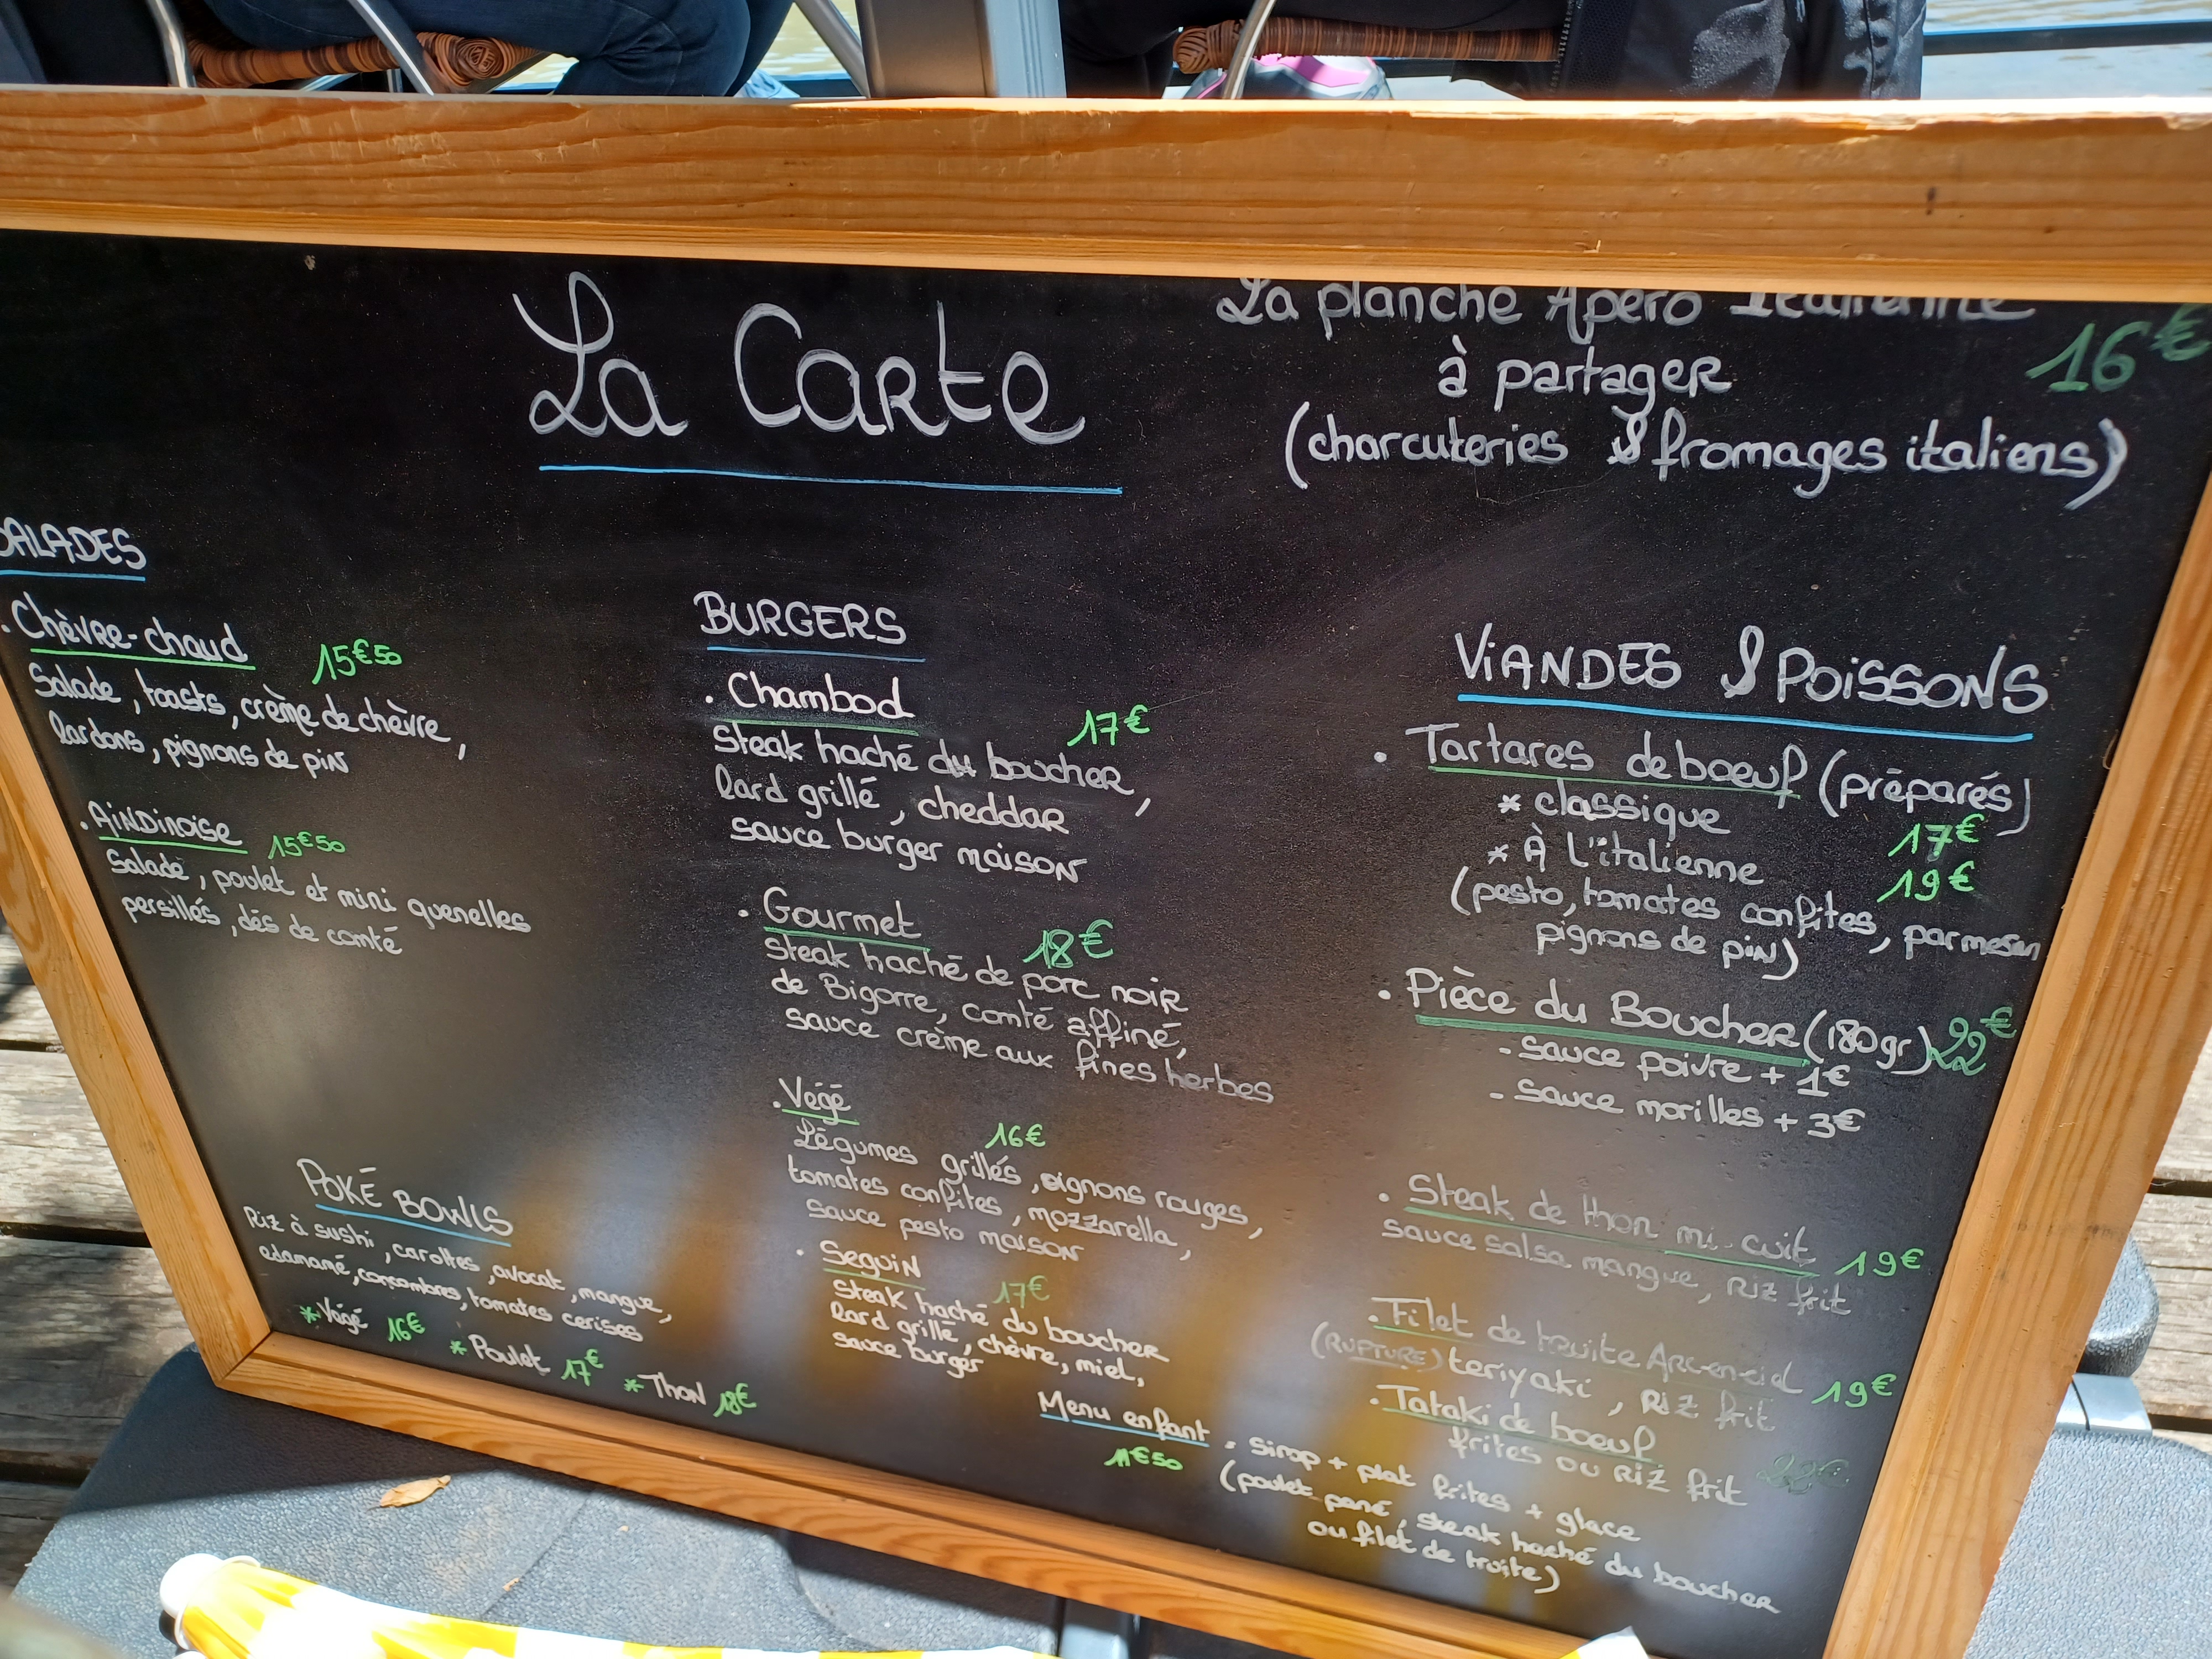 La Carte
La planche Apéro Italienne
16€
à partager
(charcuteries & fromages italiens)
SALADES
. Chèvre-chaud 15€50
Salade, toasts, crème de chèvre,
lardons, pignons de pin
. Aindinoise 15€50
Salade, poulet et mini quenelles
persillés, dés de comté
POKÉ BOWLS
Riz à sushi, carottes, avocat, mangue,
edamamé, concombres, tomates cerises
*Végé 16€ *Poulet 17€ *Thon 18€
BURGERS
. Chambod 17€
Steak haché du boucher,
lard grillé, cheddar
sauce burger maison
. Gourmet 18€
Steak haché de porc noir
de Bigorre, comté affiné,
sauce crème aux fines herbes
. Végé 16€
Légumes grillés, oignons rouges,
tomates confites, mozzarella,
sauce pesto maison
. Seguin 17€
Steak haché du boucher
lard grillé, chèvre, miel,
sauce burger
VIANDES & POISSONS
. Tartares de boeuf (préparés)
* classique 17€
* À l'italienne 19€
(pesto, tomates confites, parmesan
pignons de pin)
. Pièce du Boucher (180gr) 22€
- sauce poivre + 1€
- sauce morilles + 3€
. Steak de thon mi-cuit 19€
sauce salsa mangue, riz frit
. Filet de truite Arc-en-ciel 19€
(RUPTURE) teriyaki, riz frit
. Tataki de boeuf
frites ou riz frit
Menu enfant : sirop + plat frites + glace
11€50 (poulet pané, steak haché du boucher
ou filet de truite)